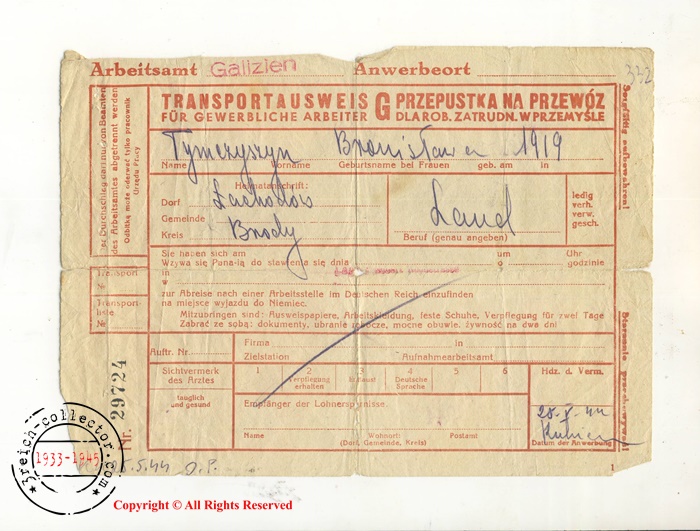 Arbeitsamt Galizien Anwerbeort
322
TRANSPORTAUSWEIS G PRZEPUSTKA NA PRZEWÓZ
FÜR GEWERBLICHE ARBEITER DLA ROB. ZATRUDN. W PRZEMYŚLE
Der Durchschlag darf nur von Beamten
des Arbeitsamtes abgetrennt werden
Odbitkę może oderwać tylko pracownik
Urzędu Pracy
Sorgfältig aufbewahren!
Starannie przechowywać!
Tymczyszyn Bronisława 1919
Name Vorname Geburtsname bei Frauen geb. am in
Heimatanschrift:
Dorf
Gemeinde
Kreis Brody
Land
Beruf (genau angeben)
ledig
verh.
verw.
gesch.
Sie haben sich am um Uhr
Wzywa się Pana-ią do stawienia się dnia o godzinie
in
w
Transport
№
Transport-
liste
№
zur Abreise nach einer Arbeitsstelle im Deutschen Reich einzufinden
na miejsce wyjazdu do Niemiec.
Mitzubringen sind: Ausweispapiere, Arbeitskleidung, feste Schuhe, Verpflegung für zwei Tage
Zabrać ze sobą: dokumenty, ubranie robocze, mocne obuwie, żywność na dwa dni
Auftr. Nr. Firma in
Zielstation Aufnahmearbeitsamt
Sichtvermerk
des Arztes
tauglich
und gesund
1 2 3 4 5 6
Verpflegung
erhalten
Entlaust
Deutsche
Sprache
Hdz. d. Verm.
Empfänger der Lohnersparnisse.
Name Wohnort: Postamt
(Dorf, Gemeinde, Kreis)
28.V.44
Datum der Anwerbung
Nr. 29724
5.44 O.P.
1
3reich-collector.com
1933-1945
Copyright © All Rights Reserved